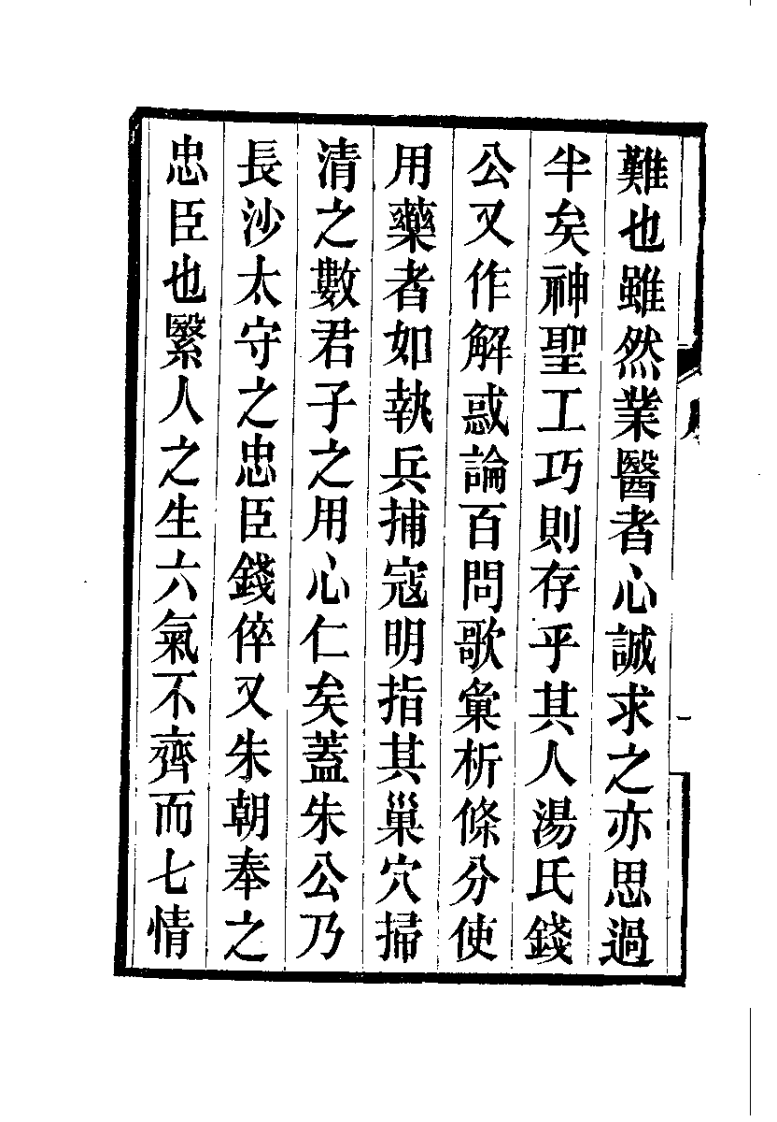 難也雖然業醫者心誠求之亦思過
半矣神聖工巧則存乎其人湯氏錢
公又作解惑論百問歌彙析條分使
用藥者如執兵捕寇明指其巢穴掃
清之數君子之用心仁矣蓋朱公乃
長沙太守之忠臣錢倅又朱朝奉之
忠臣也繄人之生六氣不齊而七情